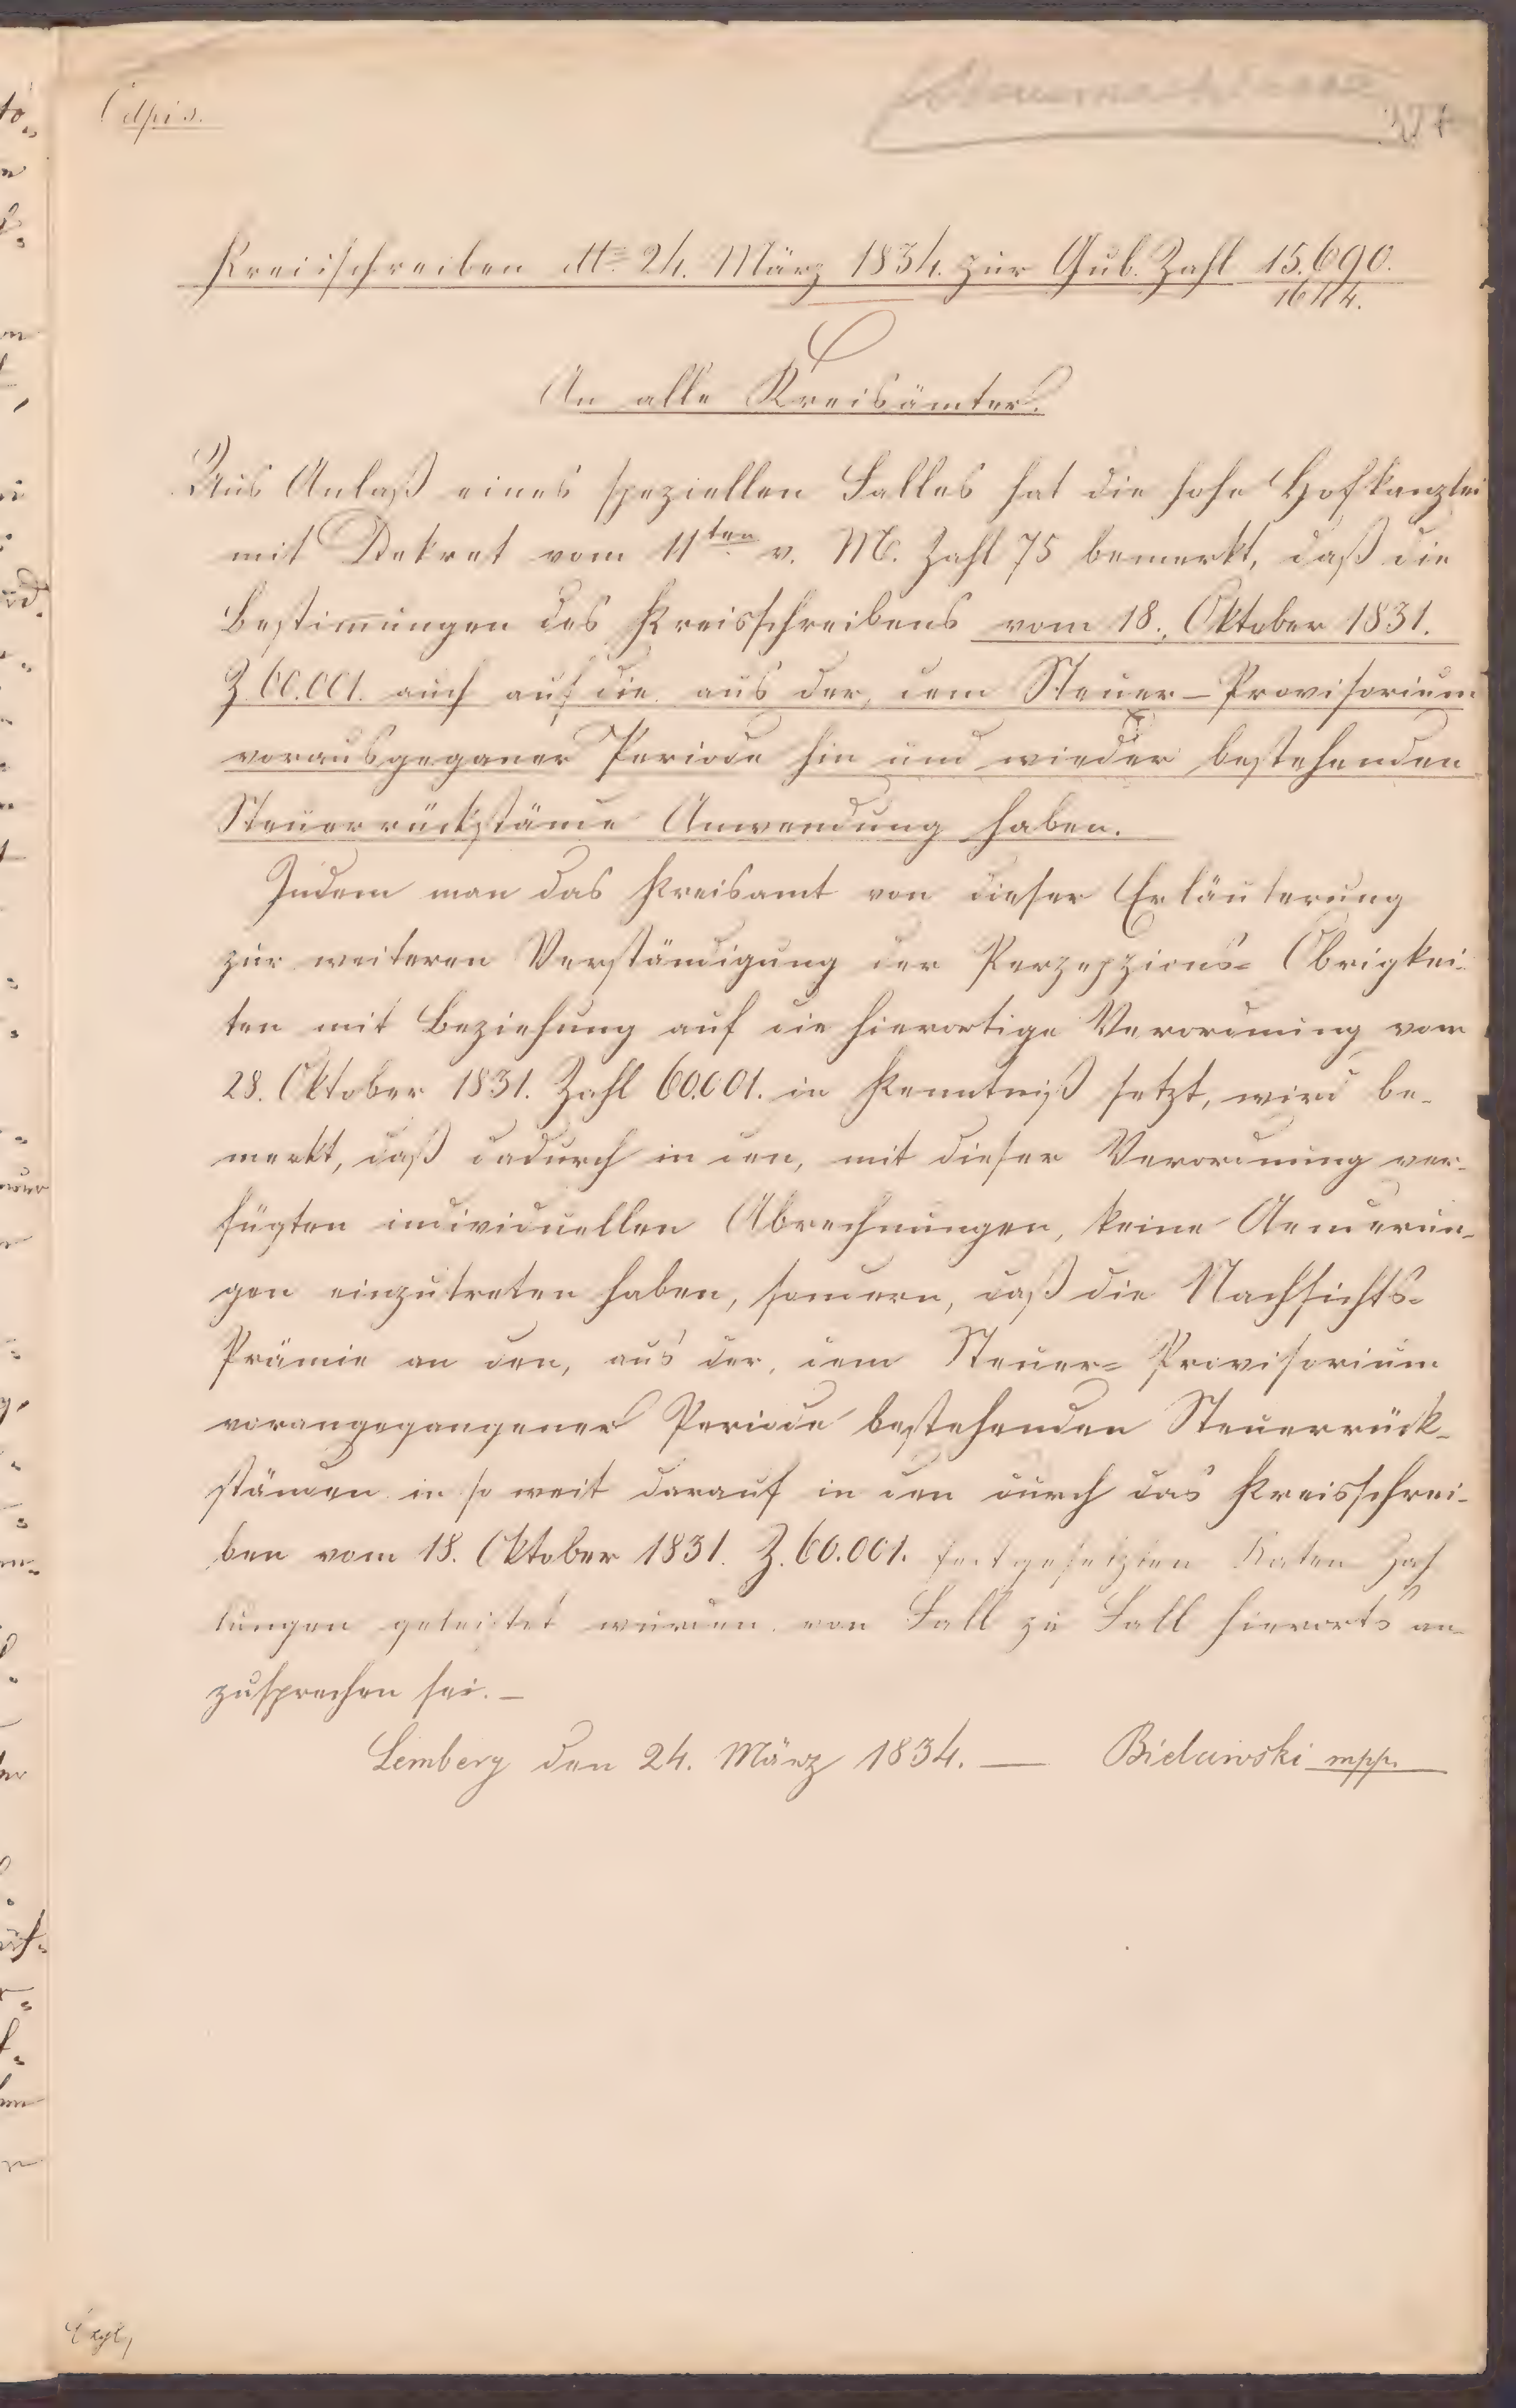 Odpis.
Kreisschreiben dto 24. März 1834. zur Gub. Zahl 15.690.
1614.
An alle Kreisämter.
Aus Anlaß eines speziellen Falles hat die hohe Hofkanzlei
mit Dekret vom 11ten v. M. Zahl 75 bemerkt, daß die
Bestim̄ungen des Kreisschreibens vom 18. Oktober 1831.
Z. 60.001. auch auf die aus der, dem Steuer-Provisorium
vorausgeganer Periode hin und wieder bestehenden
Steuerrückstände Anwendung haben.
Indem man das Kreisamt von dieser Erläuterung
zur weiteren Verständigung der Perzepzions- Obrigkei-
ten mit Beziehung auf die hierortige Verordnung vom
28. Oktober 1831. Zahl 60.001. in Kenntniß setzt, wird be-
merkt, daß dadurch in den, mit dieser Verordnung ver-
fügten individuellen Abrechnungen, keine Aenderun-
gen einzutreten haben, sondern, daß die Nachsichts-
Prämie an den, aus der, dem Steuer- Provisorium
vorangegangener Periode bestehenden Steuerrück-
ständen in so weit darauf in den durch das Kreisschrei-
ben vom 18. Oktober 1831. Z. 60.001. festgesetzten Raten Zah
lungen geleistet wurden von Fall zu Fall hierorts an-
zusprechen sei. —
Lemberg den 24. März 1834. — Bielawski mpp.